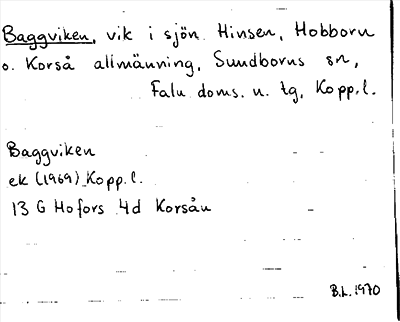 Baggviken, vik i sjön Hinsen, Hobborn
o. Korså allmänning, Sundborns sn,
Falu doms. n. tg, Kopp. l.
Baggviken
ek (1969) Kopp. l.
13 G Hofors 4d Korsån
B.L. 1970